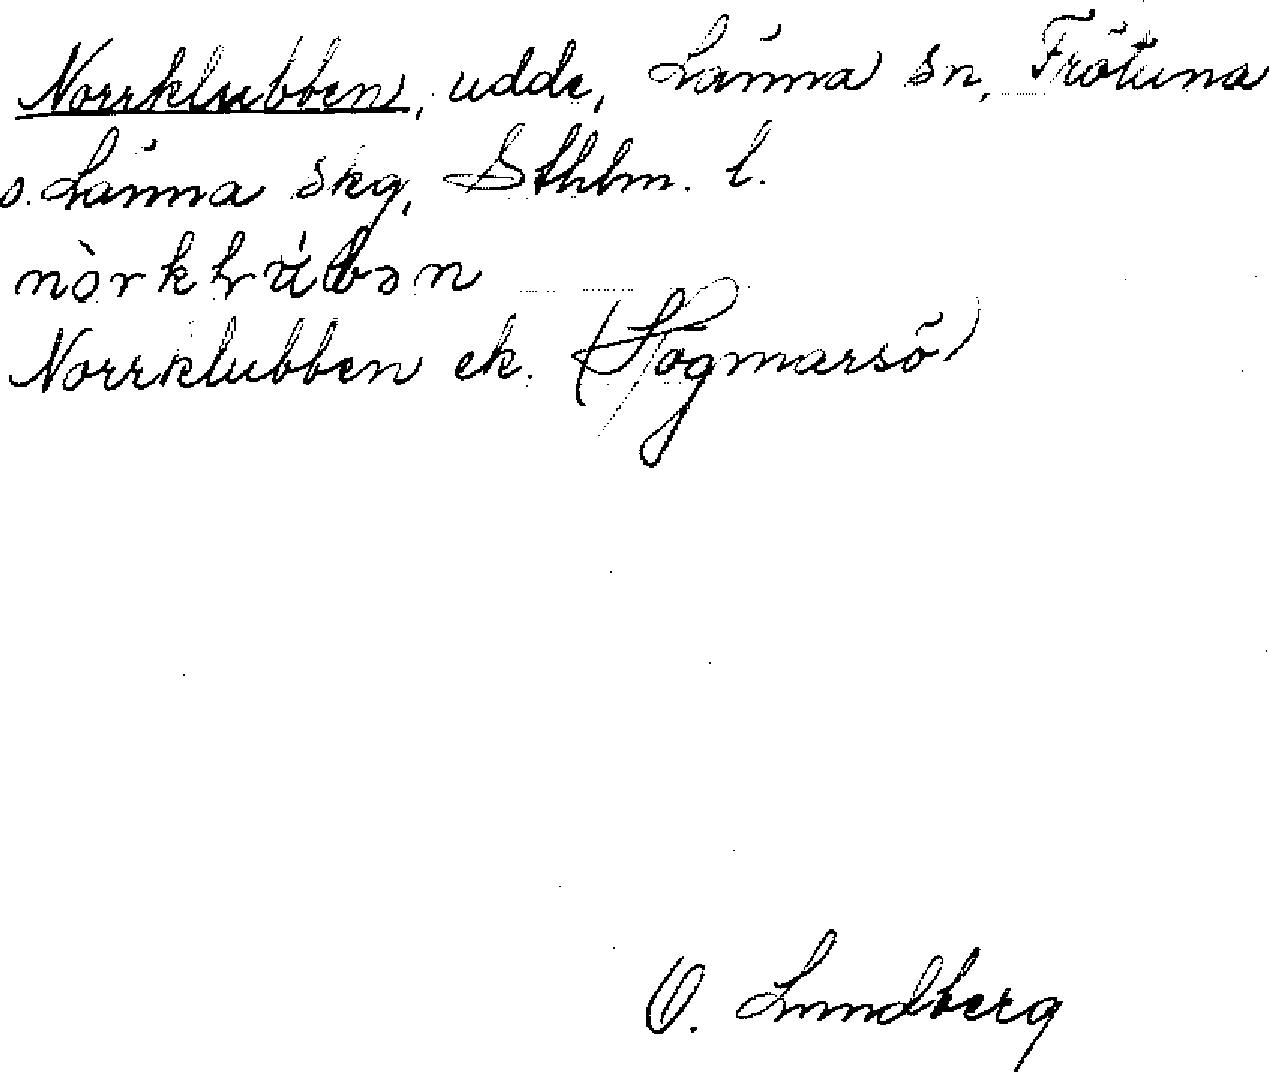 Norrklubben, udde, Länna sn, Frötuna
o. Länna skg, Sthlm. l.
Norrklubben ek. (Högmarsö)
O. Lundberg